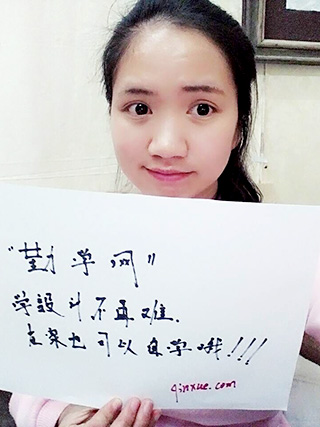 "勤学网"
学设计不再难.
在家也可以自学哦!!!
qinxue.com